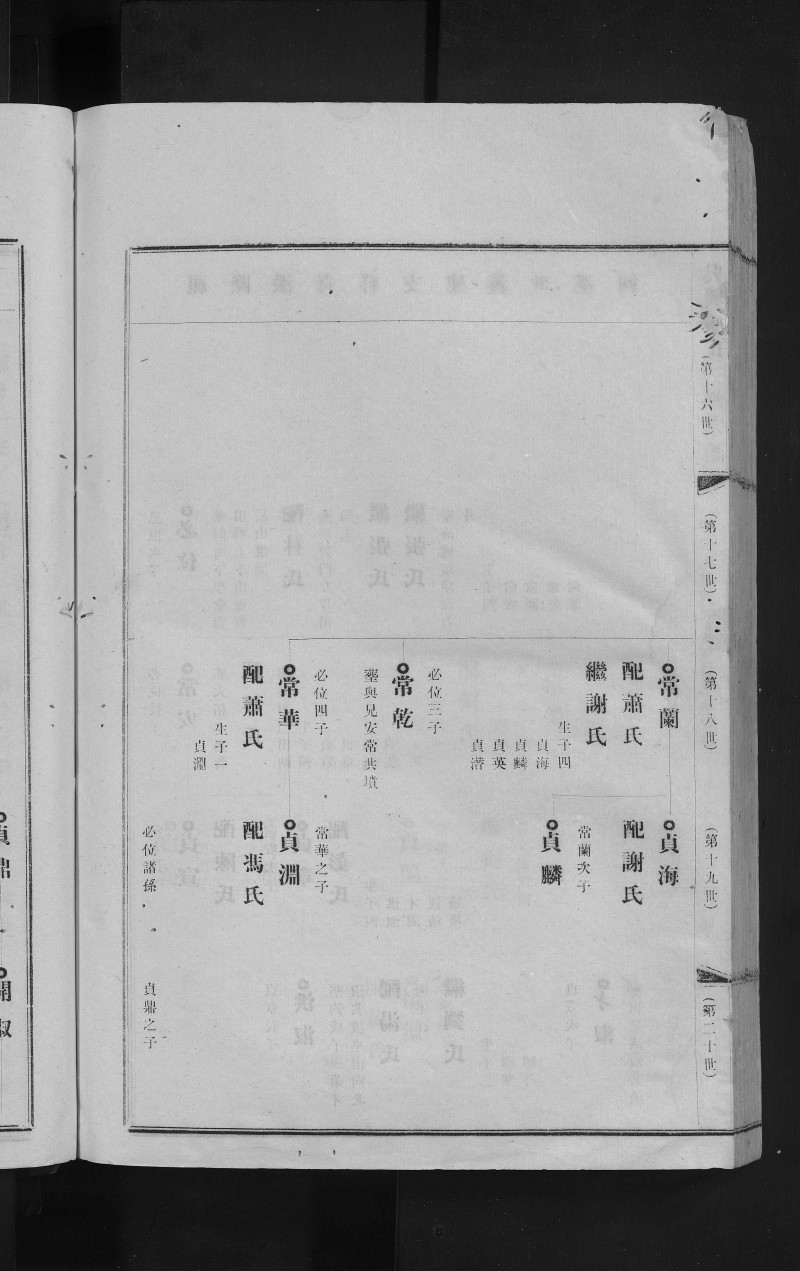 (第十六世)
(第十七世)
(第十八世)
(第十九世)
(第二十世)
常蘭
配蕭氏
繼謝氏
生子四
貞海
貞麟
貞英
貞潛
必位三子
常乾
塟與兄安常共墳
必位四子
常華
配蕭氏
生子一
貞淵
貞海
配謝氏
常蘭次子
貞麟
常華之子
貞淵
配馮氏
必位諸孫
貞鼎之子
貞鼎
開淑